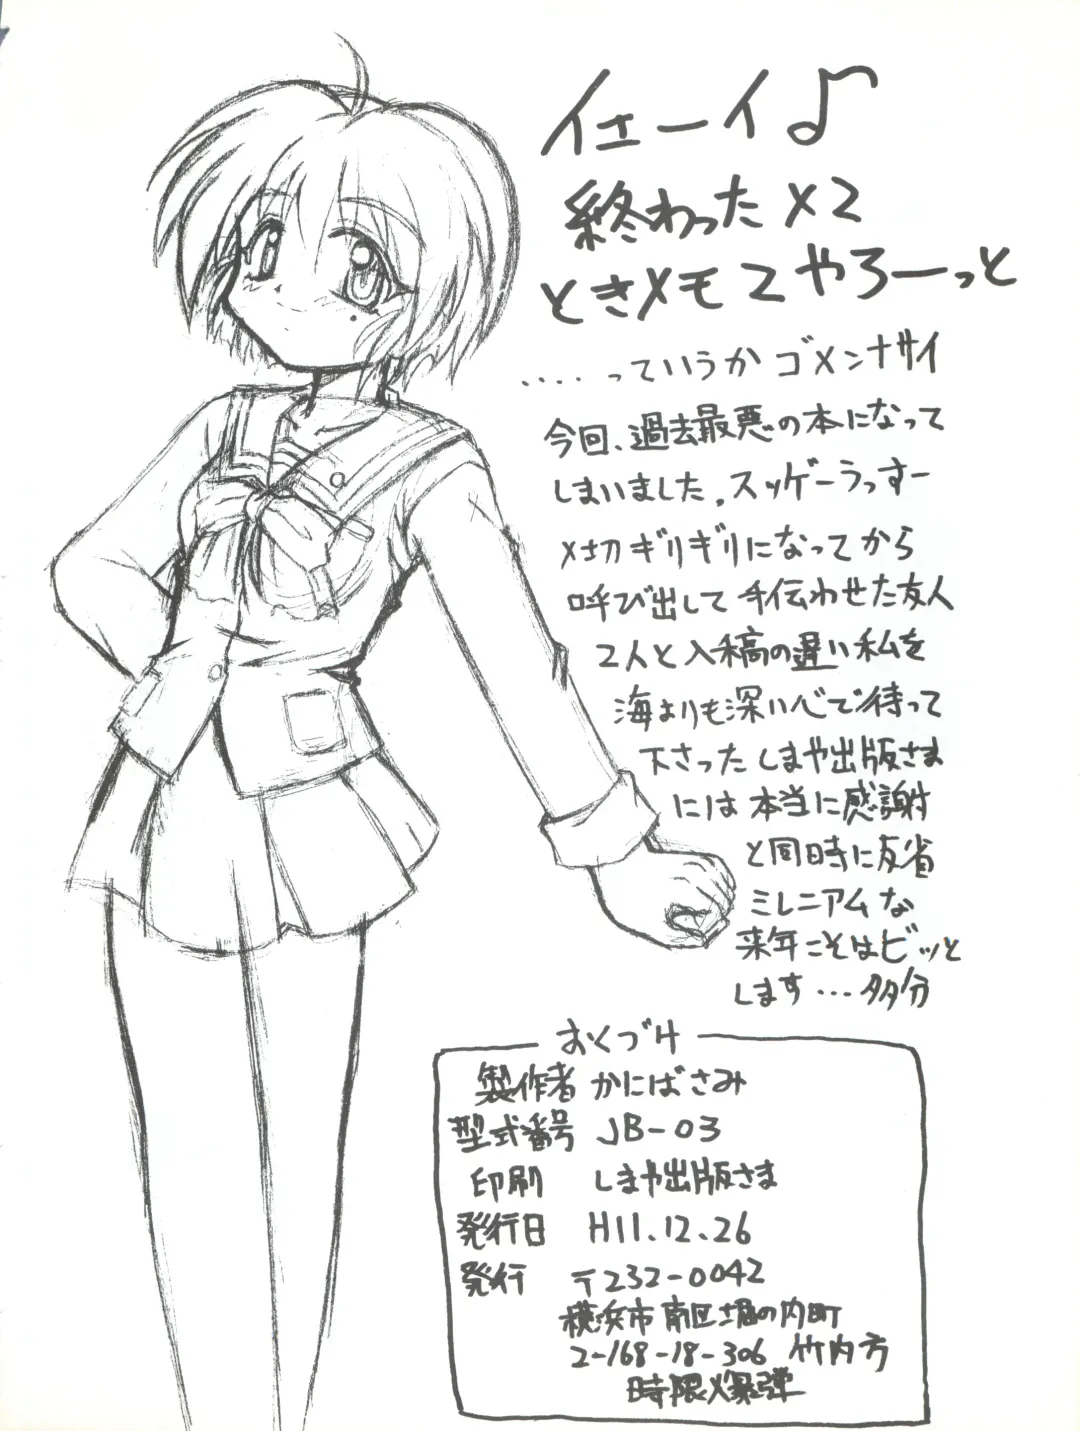 イェーイ♪
終わった×2
ときメモ2やろーっと
....っていうかゴメンナサイ
今回、過去最悪の本になって
しまいました。スッゲーうっすー
〆切ギリギリになってから
呼び出して手伝わせた友人
2人と入稿の遅い私を
海よりも深い心で待って
下さったしまや出版さま
には本当に感謝
と同時に反省
ミレニアムな
来年こそはビッと
します...多分
おくづけ
製作者 かにばさみ
型式番号 JB-03
印刷 しまや出版さま
発行日 H11.12.26
発行 〒232-0042
横浜市南区堀の内町
2-168-18-306 竹内方
時限爆弾